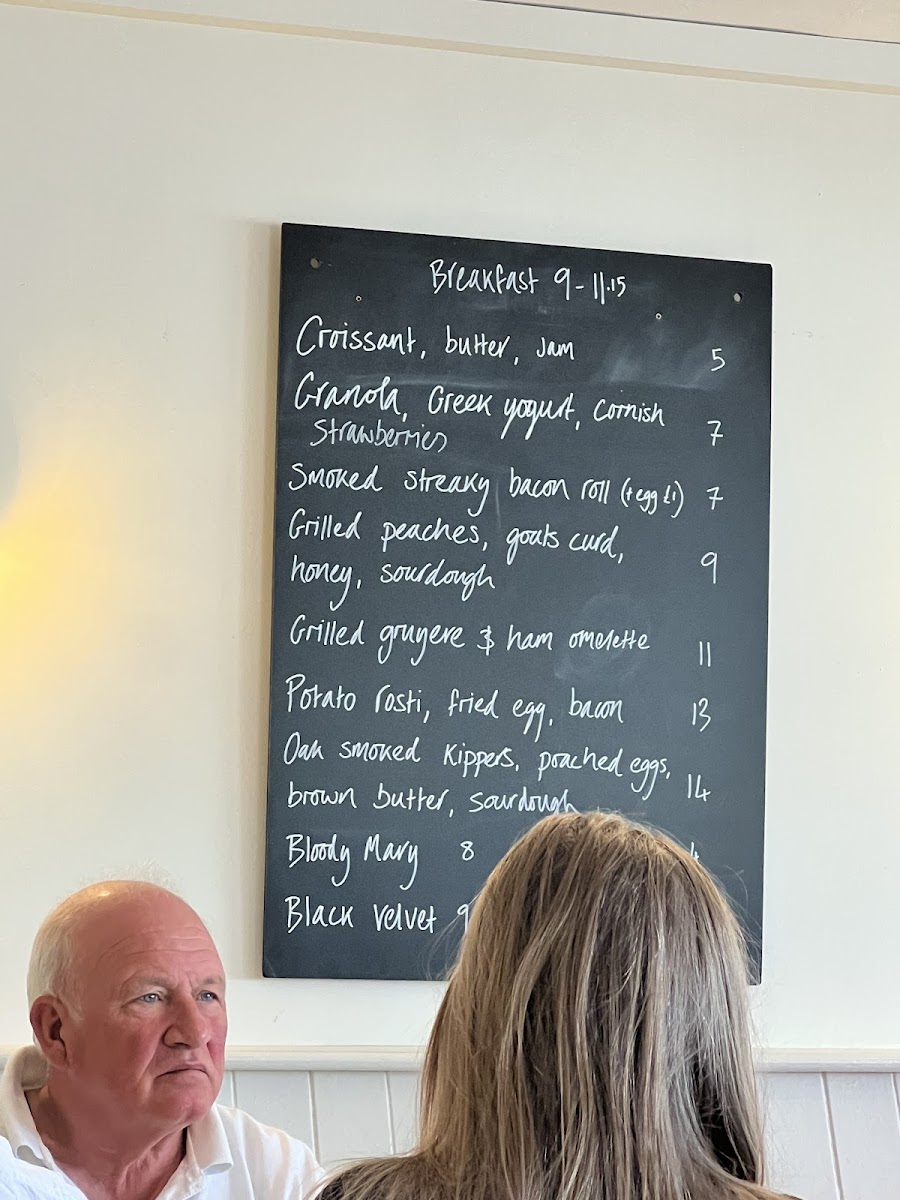 Breakfast 9-11.15
Croissant, butter, jam 5
Granola, Greek yogurt, cornish
Strawberries 7
Smoked streaky bacon roll (+egg £1) 7
Grilled peaches, goats curd,
honey, sourdough 9
Grilled gruyere & ham omelette 11
Potato rosti, fried egg, bacon 13
Oak smoked kippers, poached eggs,
brown butter, sourdough 14
Bloody Mary 8
Black Velvet 9